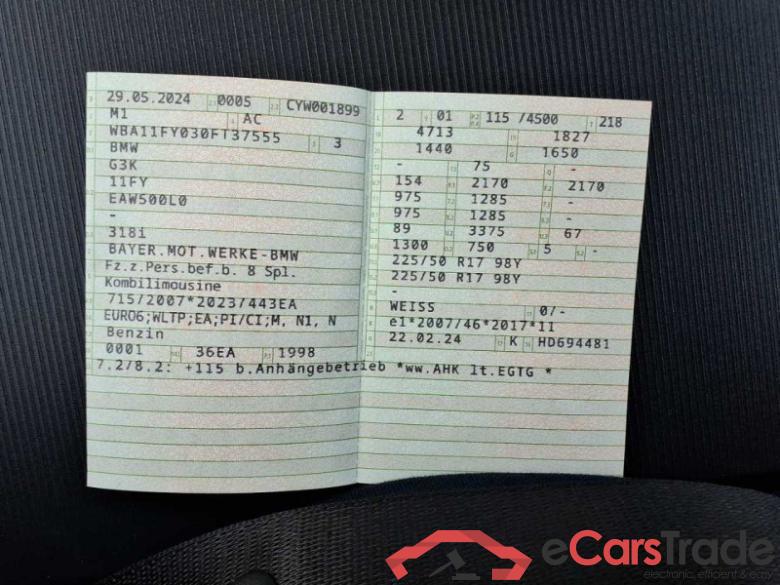 29.05.2024 0005 CYW001899
M1 AC
WBA11FY030FT37555 3
BMW
G3K
11FY
EAW500L0
-
318i
BAYER.MOT.WERKE-BMW
Fz.z.Pers.bef.b. 8 Spl.
Kombilimousine
715/2007*2023/443EA
EURO6;WLTP;EA;PI/CI;M, N1, N
Benzin
0001 36EA 1998
7.2/8.2: +115 b.Anhängebetrieb *ww.AHK lt.EGTG *
2 01 115 /4500 218
4713 1827
1440 1650
- 75 -
154 2170 2170
975 1285 -
975 1285 -
89 3375 67
1300 750 5 -
225/50 R17 98Y
225/50 R17 98Y
-
WEISS 0/-
e1*2007/46*2017*11
22.02.24 K HD694481
eCarsTrade
electronic, efficient & easy